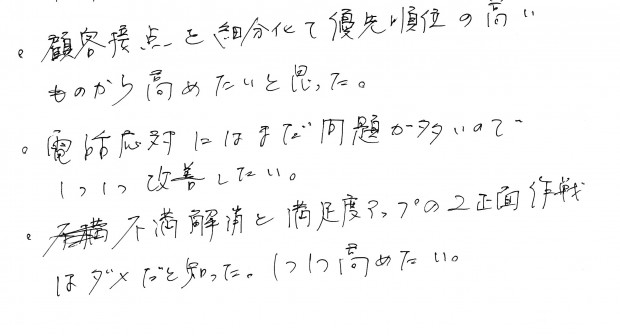 ・顧客接点を細分化て優先順位の高い
ものから高めたいと思った。
・電話応対にはまだ問題が多いので
1つ1つ改善したい。
・不満解消と満足度アップの2正面作戦
はダメだと知った。1つ1つ高めたい。